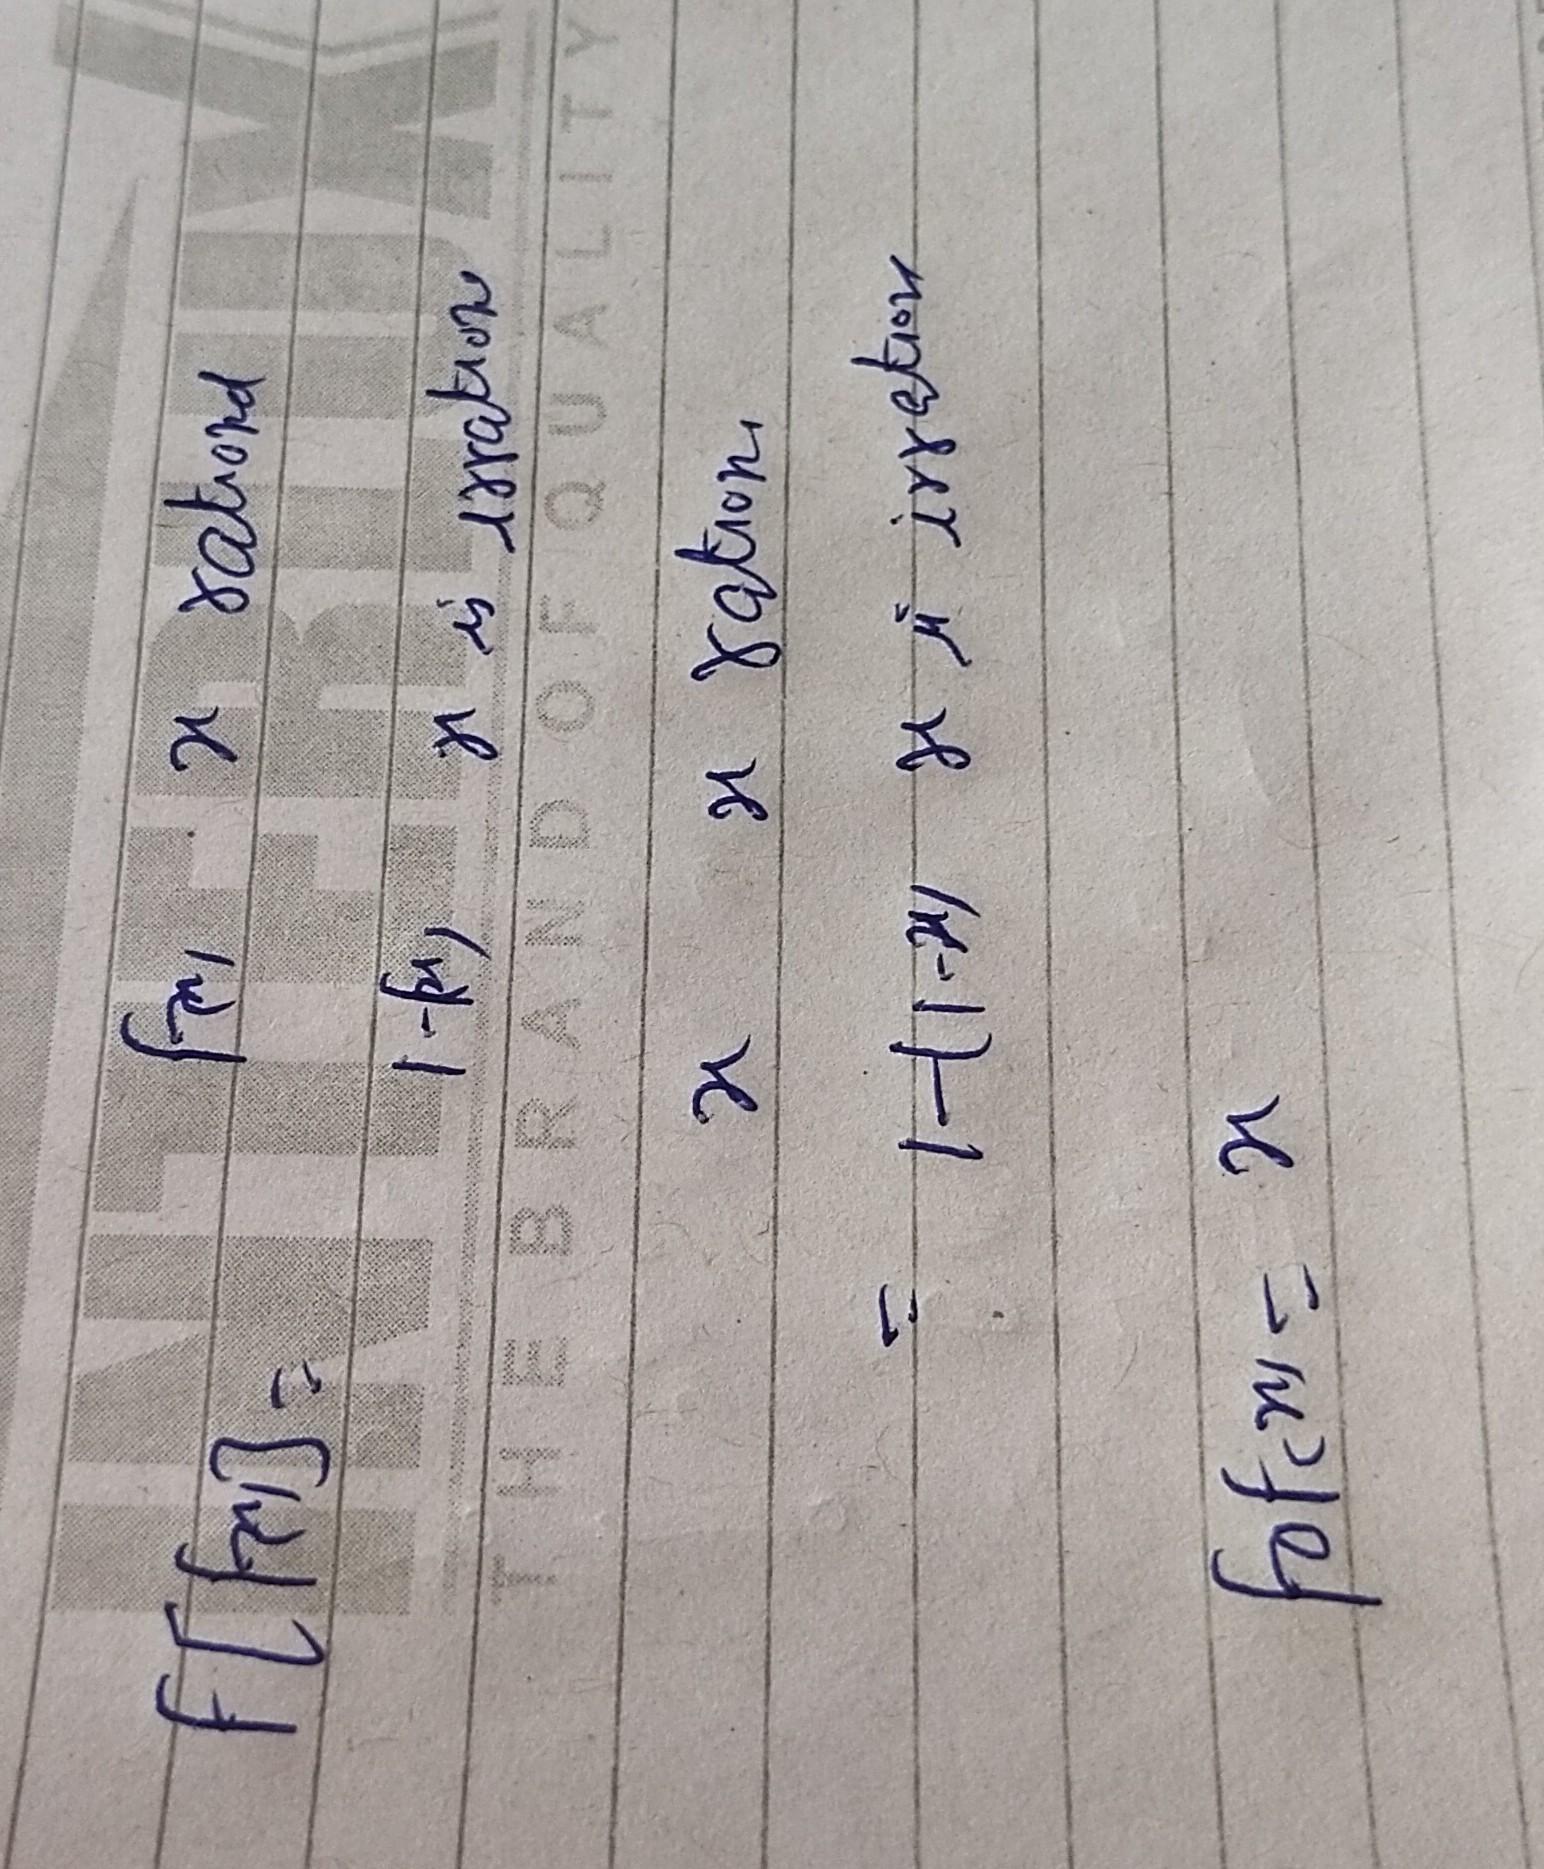 MATERIUX
THE BRAND OF QUALITY
f(x), x rational
f[f(x)] =
1-f(x), x is irration
x x ration,
= 1-(1-x), x is irration
fof(x) = x